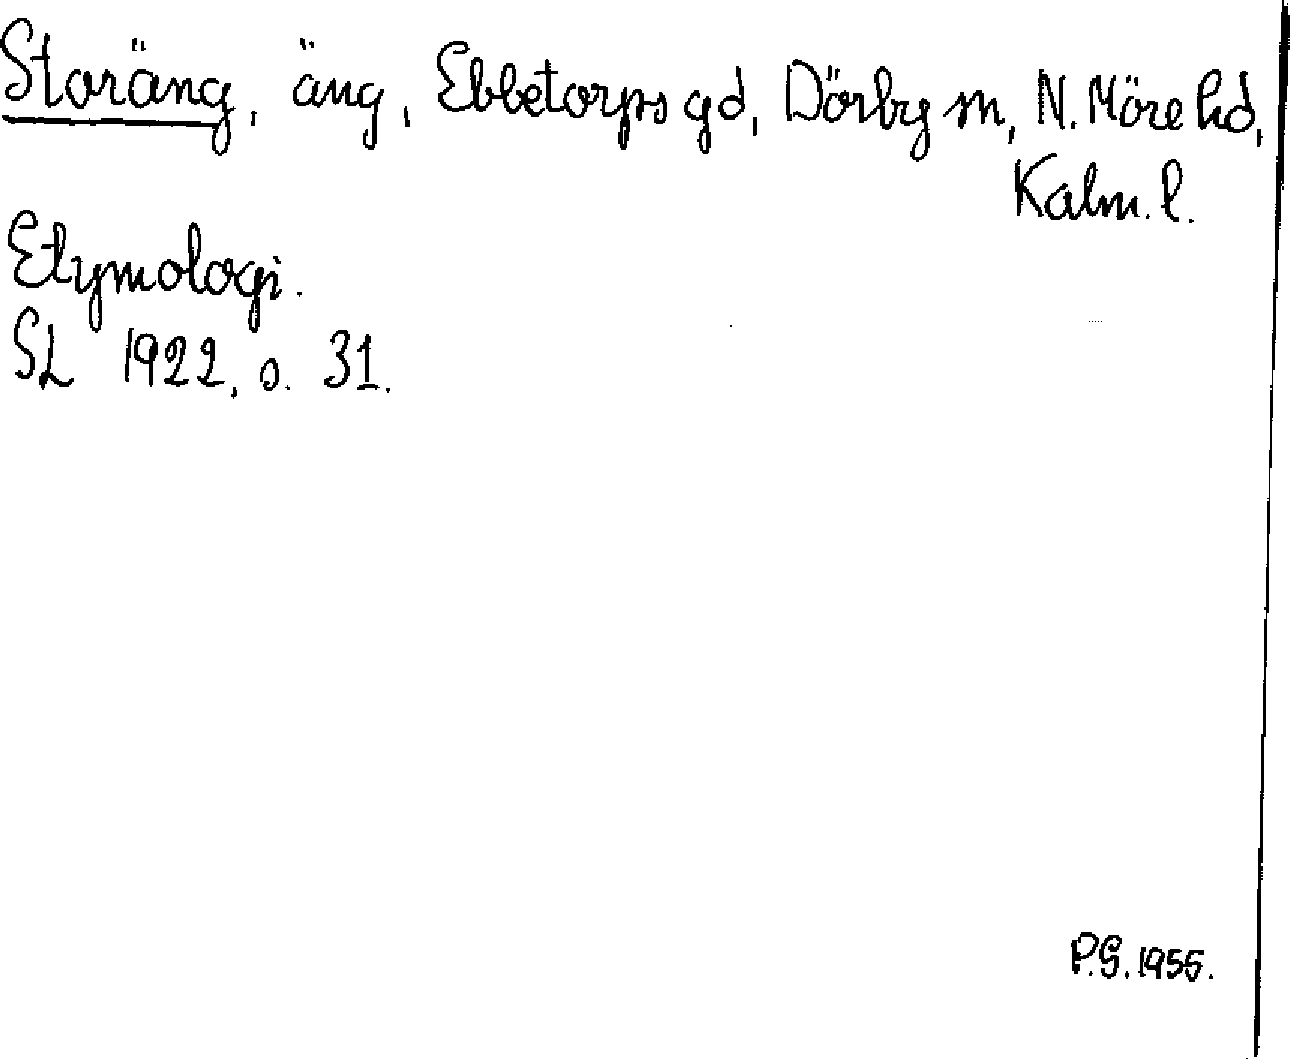 Storäng, äng, Ebbetorps gd, Dörby sn, N. Möre hd,
Kalm. l.
Etymologi.
SL 1922, s. 31.
P.G. 1955.